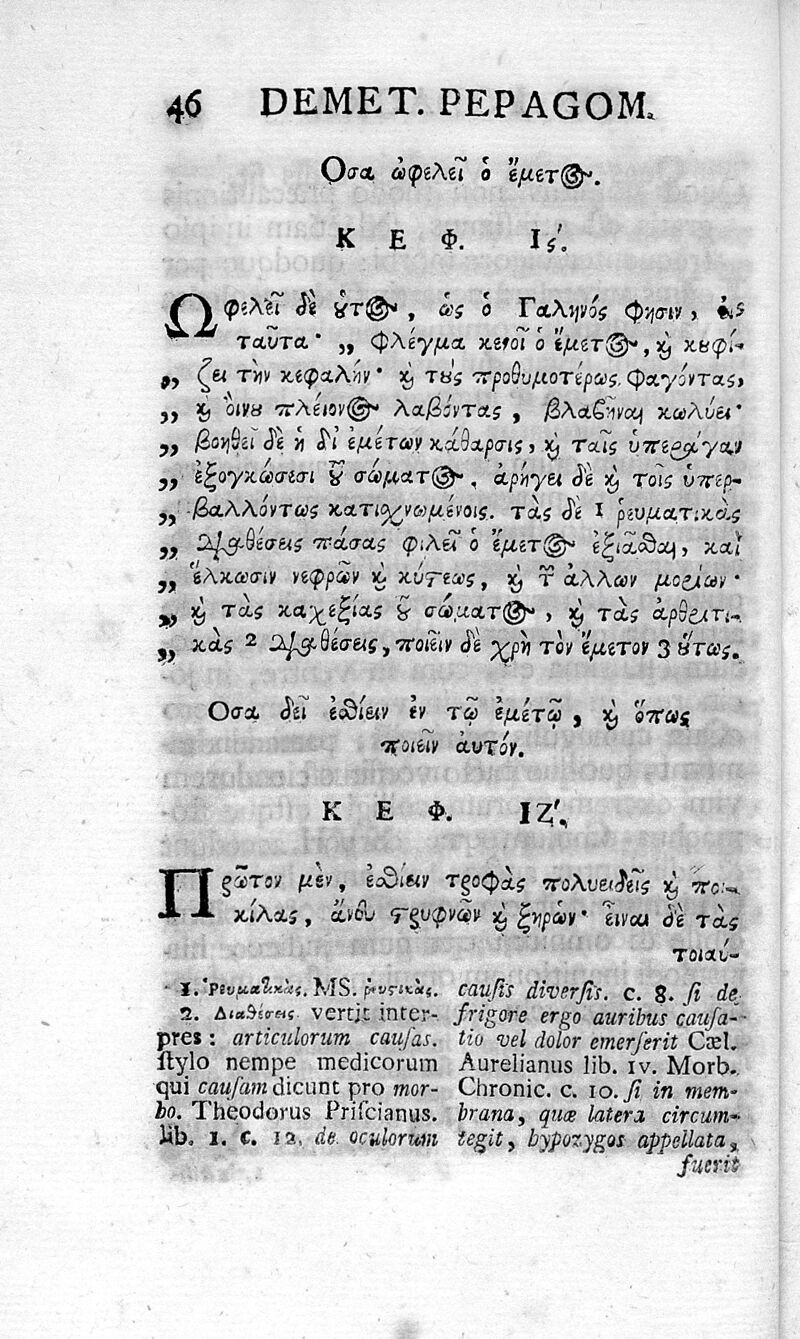 46 DEMET. PEPAGOM.
Οσα ὠφελεῖ ὁ ἔμετος.
Κ Ε Φ. Ις΄.
Ωφελεῖ δὲ ȣ̔τος, ὡς ὁ Γαληνός φησιν, εἰς
ταῦτα· ,, Φλέγμα κενοῖ ὁ ἔμετος, ϗ̀ κȣφί-
,, ζει τὴν κεφαλήν· ϗ̀ τȣ̀ς προθυμοτέρως φαγόντας,
,, ϗ̀ ὂινȣ πλέιονος λαβόντας, βλαβῆναι κωλύει·
,, βοηθεῖ δὲ ἡ δἰ ἐμέτων κάθαρσις, ϗ̀ ταῖς ὑπεράγαν
,, ἐξογκώσεσι τȣ͂ σώματος, ἀρήγει δὲ ϗ̀ τοῖς ὑπερ-
,, βαλλόντως κατιχνωμένοις. τὰς δὲ 1 ῥευματικὰς
,, διαθέσεις πάσας φιλεῖ ὁ ἔμετος ἐξιᾶσθαι, καὶ
,, ἕλκωσιν νεφρῶν ϗ̀ κύστεως, ϗ̀ τῶν ἄλλων μορίων·
,, ϗ̀ τὰς καχεξίας τȣ͂ σώματος, ϗ̀ τὰς ἀρθριτι-
,, κὰς 2 διαθέσεις, ποιεῖν δὲ χρὴ τὸν ἔμετον 3 ȣ̔́τως.
Οσα δεῖ ἐσθίειν ἐν τῷ ἐμέτῳ, ϗ̀ ὅπως
ποιεῖν ἀυτόν.
Κ Ε Φ. ΙΖ΄.
Πρῶτον μὲν, ἐσθίειν τροφὰς πολυειδεῖς ϗ̀ ποι-
κίλας, ἄνευ στρυφνῶν ϗ̀ ξηρῶν· εἶναι δὲ τὰς
τοιαύ-
1. Ῥευματικὰς. MS. ῥευστικὰς.
2. Διαθέσεις vertit inter-
pres: articulorum causas.
stylo nempe medicorum
qui causam dicunt pro mor-
bo. Theodorus Priscianus.
lib. 1. c. 12. de oculorum
causis diversis. c. 8. si de
frigore ergo auribus causa-
tio vel dolor emerserit Cæl.
Aurelianus lib. IV. Morb.
Chronic. c. 10. si in mem-
brana, quæ latera circum-
tegit, hypozygos appellata,
fuerit